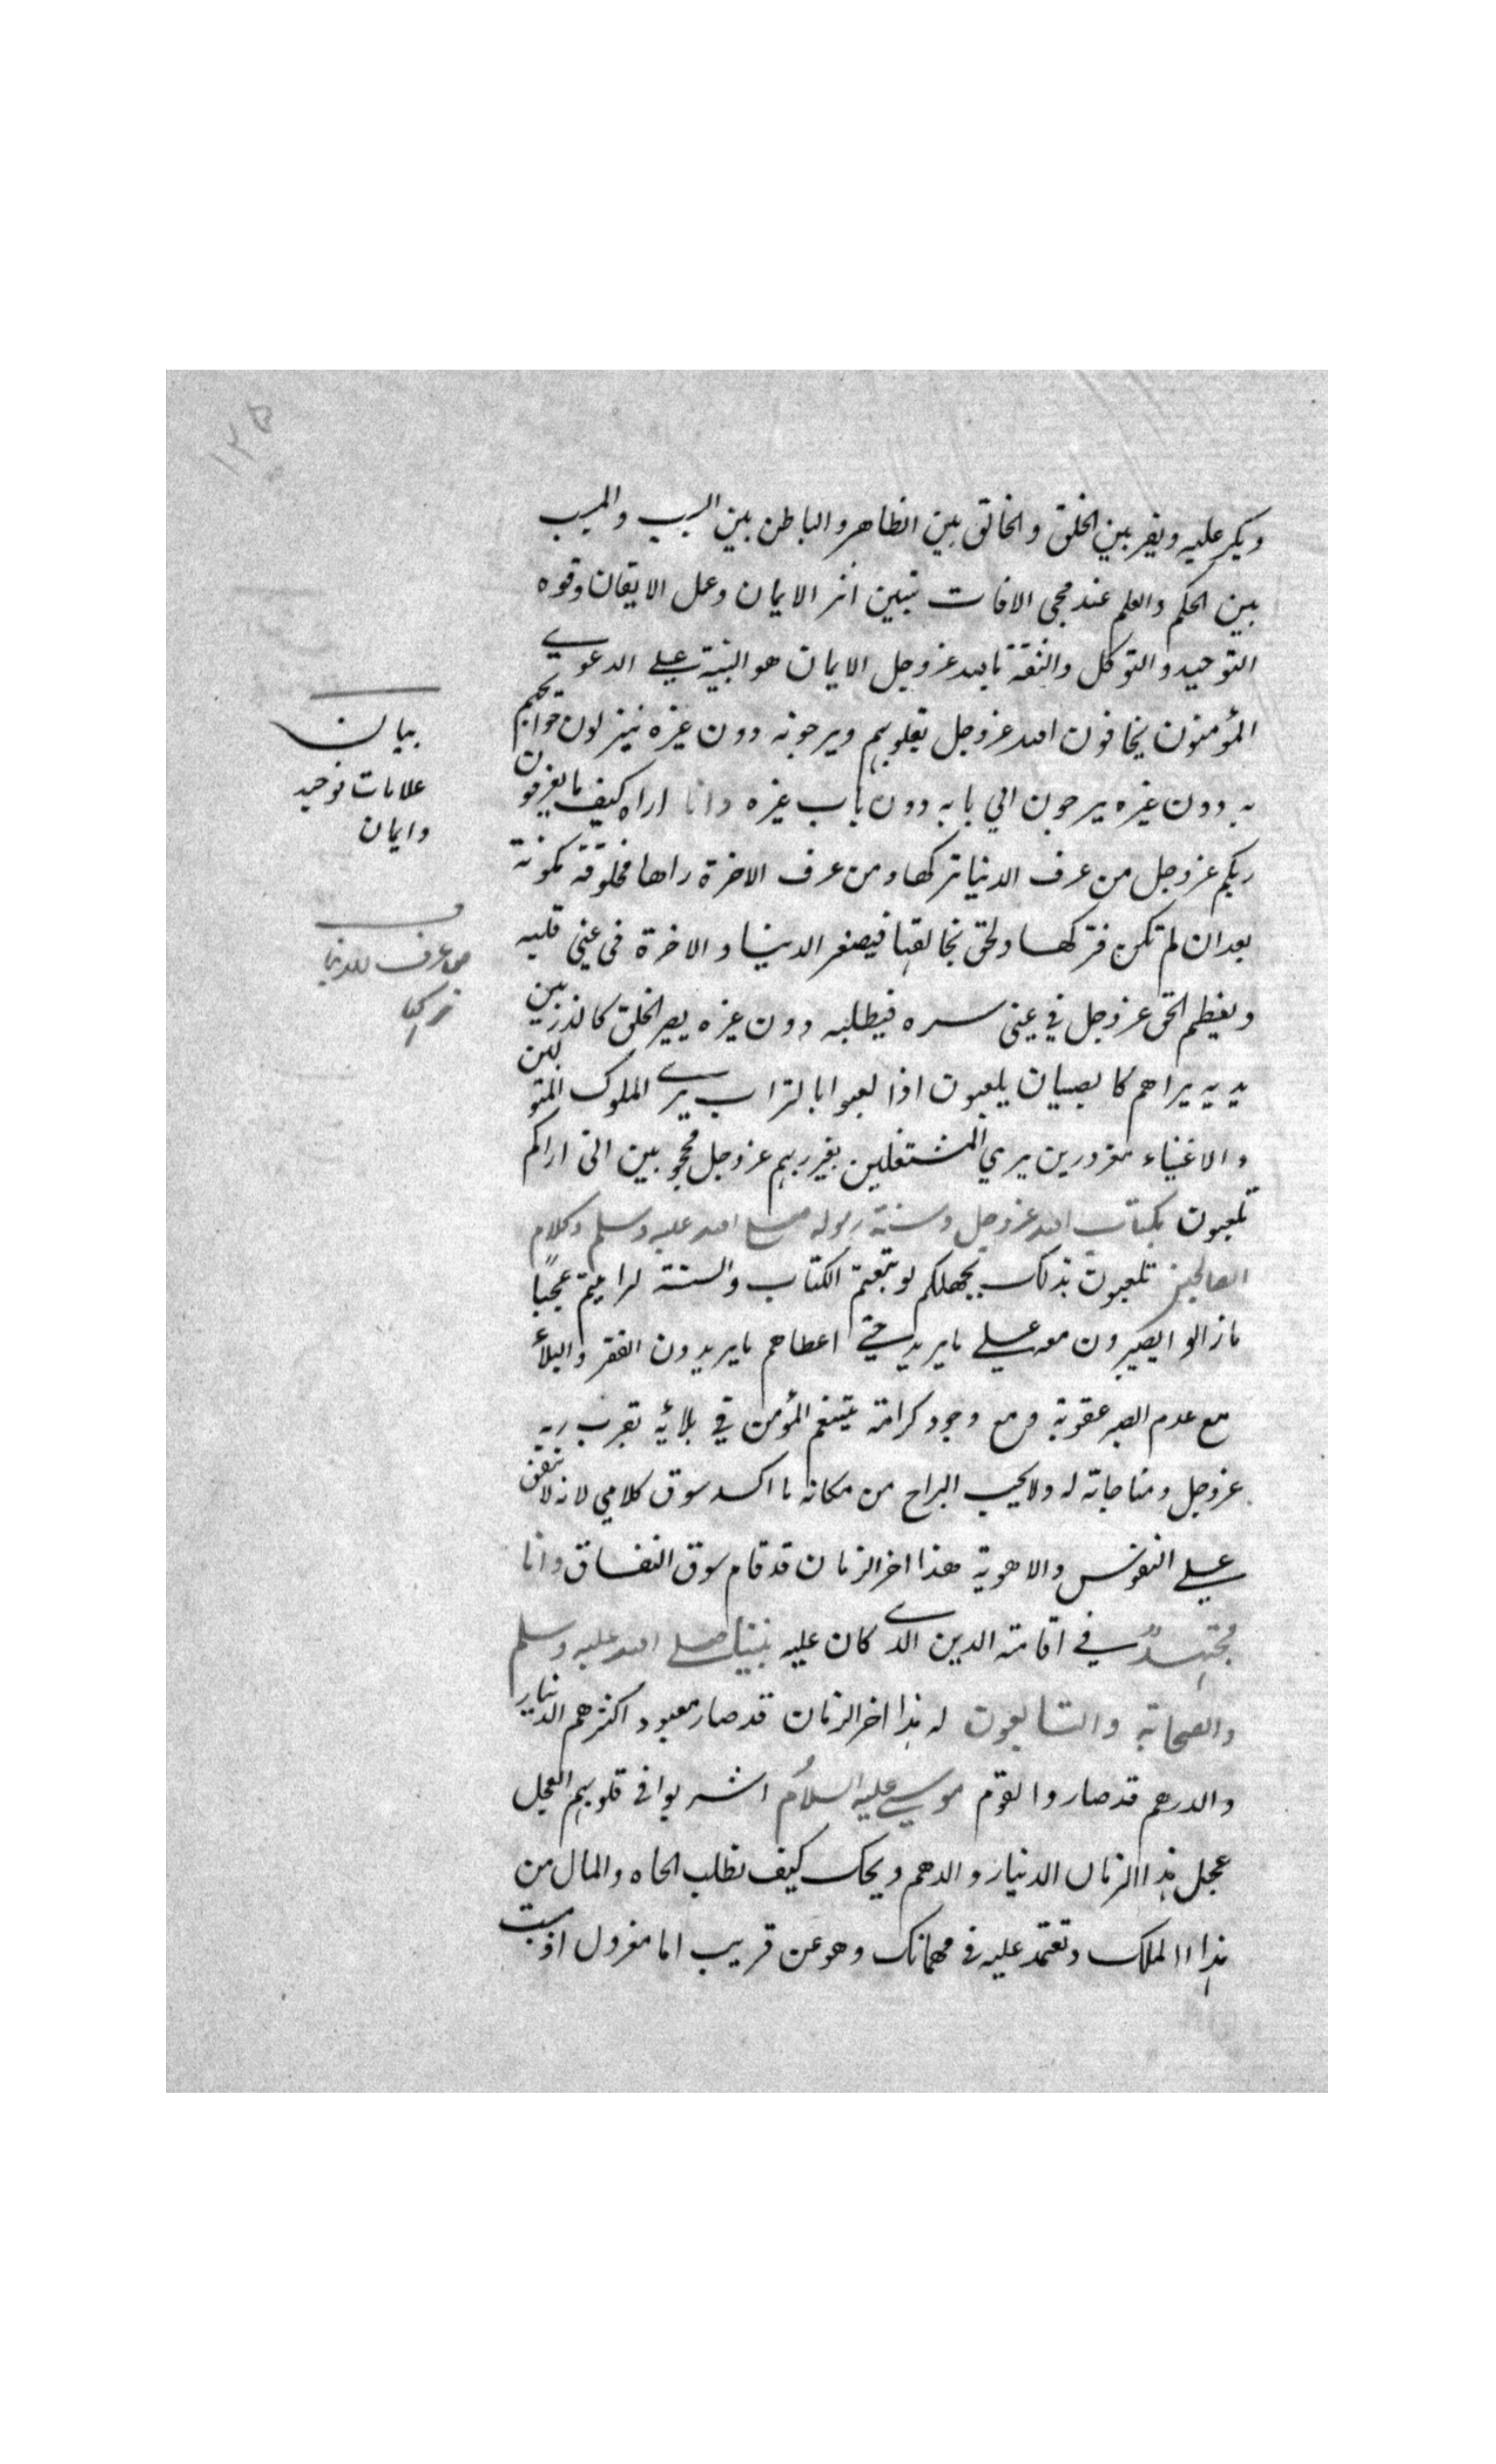 ١٢٥
ويكر عليه ويفر بين الخلق والخالق بين الظاهر والباطن بين السبب والمسبب
بين الحكم والعلم عند مجى الافات تبين اثر الايمان وعمل الايقان وقوه
التوحيد والتوكل والثقة بالله عزوجل الايمان هو البنية على الدعوى
المؤمنون يخافون الله عزوجل بقلوبهم ويرجونه دون غيره ينزلون حوايجهم
به دون غيره يرجون الي بابه دون باب غيره وانا اراه كيف ما يعرفون
ربكم عزوجل من عرف الدنيا تركها ومن عرف الاخرة راها مخلوقة مكونة
بعد ان لم تكن فتركها ولحق بخالقها فيصغر الدنيا والاخرة فى عينى قلبه
ويعظم الحق عزوجل في عينى سره فيطلبه دون غيره يصير الخلق كالذر بين
يديه يراهم كالصبيان يلعبون اذا لعبوا بالتراب يرى الملوك المتولين
والاغنياء مغرورين يري المشتغلين بغير ربهم عزوجل محجوبين انى اراكم
تلعبون بكتاب الله عزوجل وسنة رسوله صلى الله عليه وسلم وكلام
الصالحين تلعبون بذلك بجهلكم لو تبعتم الكتاب والسنة لرايتم عجبًا
ما زالوا يصبرون معه على ما يريد حتى اعطاهم ما يريدون الفقر والبلأ
مع عدم الصبر عقوبة ومع وجود كرامة يتنعم المؤمن في بلائه بقرب ربه
عزوجل ومناجاته له ولا يحب البراح من مكانه ما اكسد سوق كلامي لانه لا ينفق
على النفوس والاهوية هذا اخر الزمان قد قام سوق النفاق وانا
مجتهدٌ في اقامة الدين الذى كان عليه نبينا صلى الله عليه وسلم
والصحابة والتابعون له هذا اخر الزمان قد صار معبود اكثرهم الدينار
والدرهم قد صاروا لقوم موسى عليه السلام اشربوا فى قلوبهم العجل
عجل هذا الزمان الدينار والدهم ويحك كيف تطلب الجاه والمال من
هذا االملك وتعتمد عليه فى مهماتك وهو عن قريب اما معزول او ميت
بيان
علامات توحيد
وايمان
من عرف للدنيا
تركها